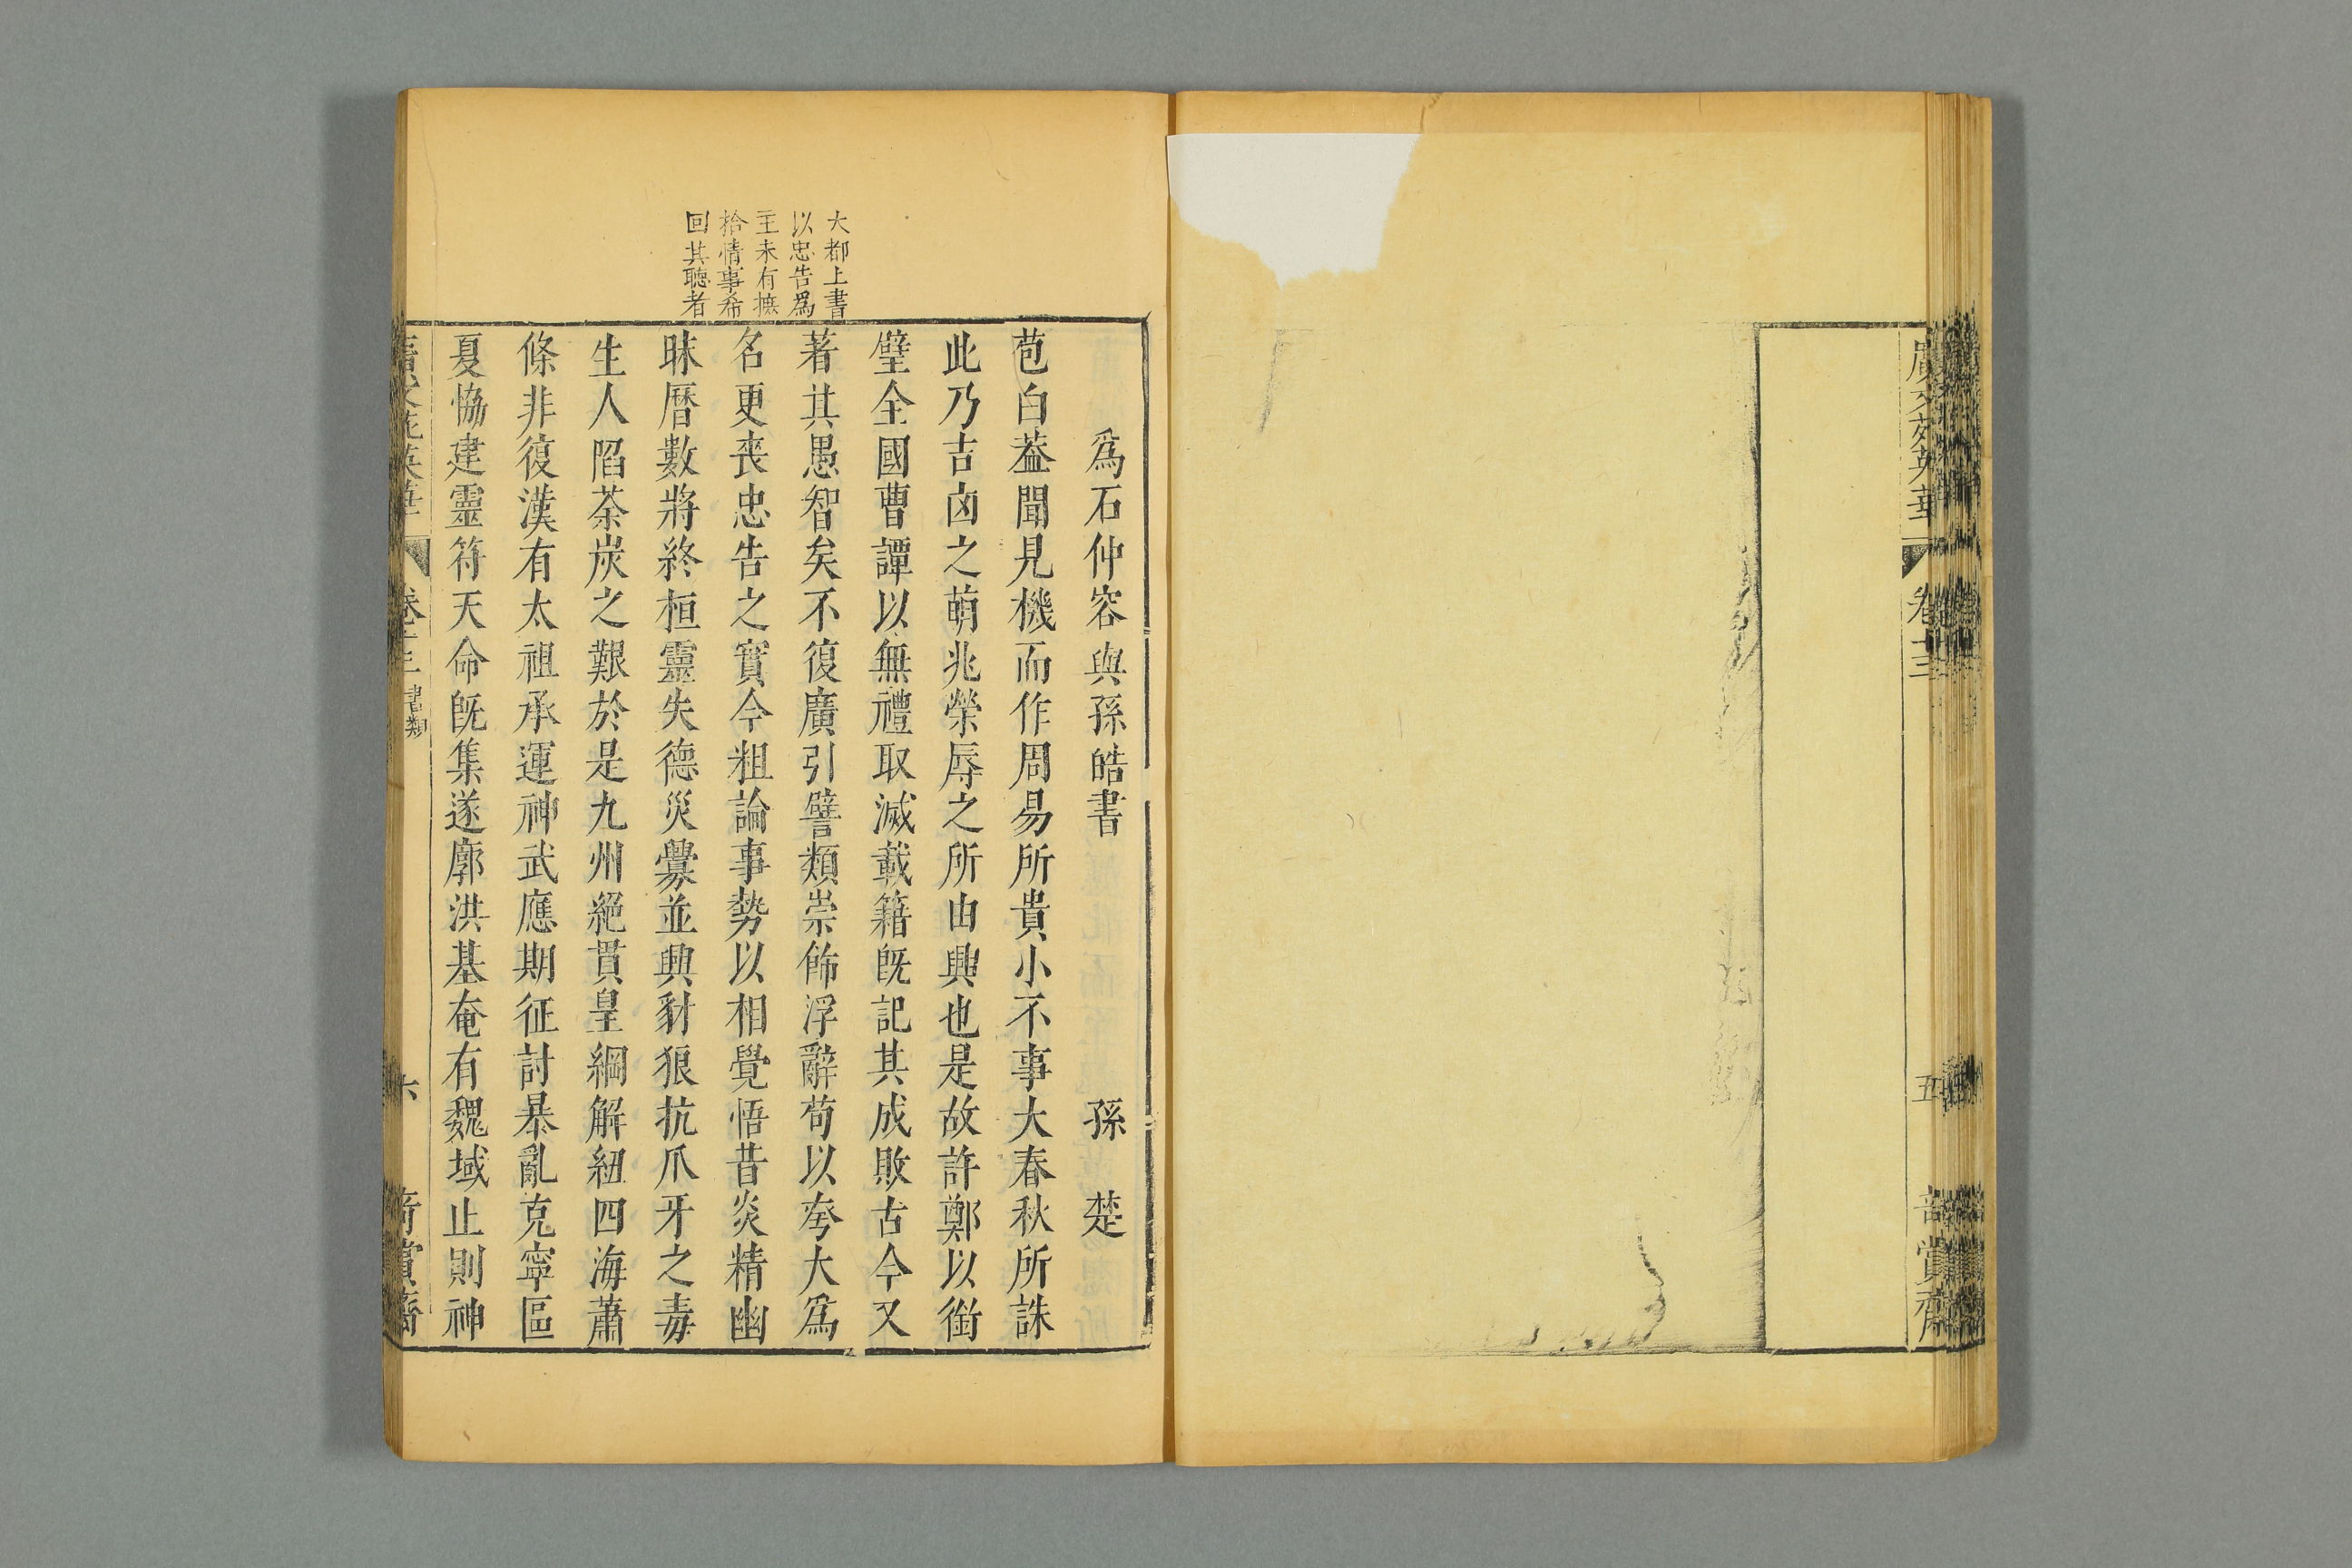 廣文苑英華
卷十三
五
賞齋
大都上書
以忠告爲
主未有摭
拾情事希
回其聽者
爲石仲容與孫皓書 孫楚
苞白葢聞見機而作周易所貴小不事大春秋所誅
此乃吉凶之萌兆榮辱之所由興也是故許鄭以銜
璧全國曹譚以無禮取滅載籍旣記其成敗古今又
著其愚智矣不復廣引譬類崇飾浮辭苟以夸大爲
名更喪忠告之實今粗論事勢以相覺悟昔炎精幽
昧曆數將終桓靈失德災釁並興豺狼抗爪牙之毒
生人陷荼炭之艱於是九州絕貫皇綱解紐四海蕭
條非復漢有太祖承運神武應期征討暴亂克寧區
夏恊建靈符天命旣集遂廓洪基奄有魏域止則神
廣文苑英華
卷十三 書類
六
賞齋